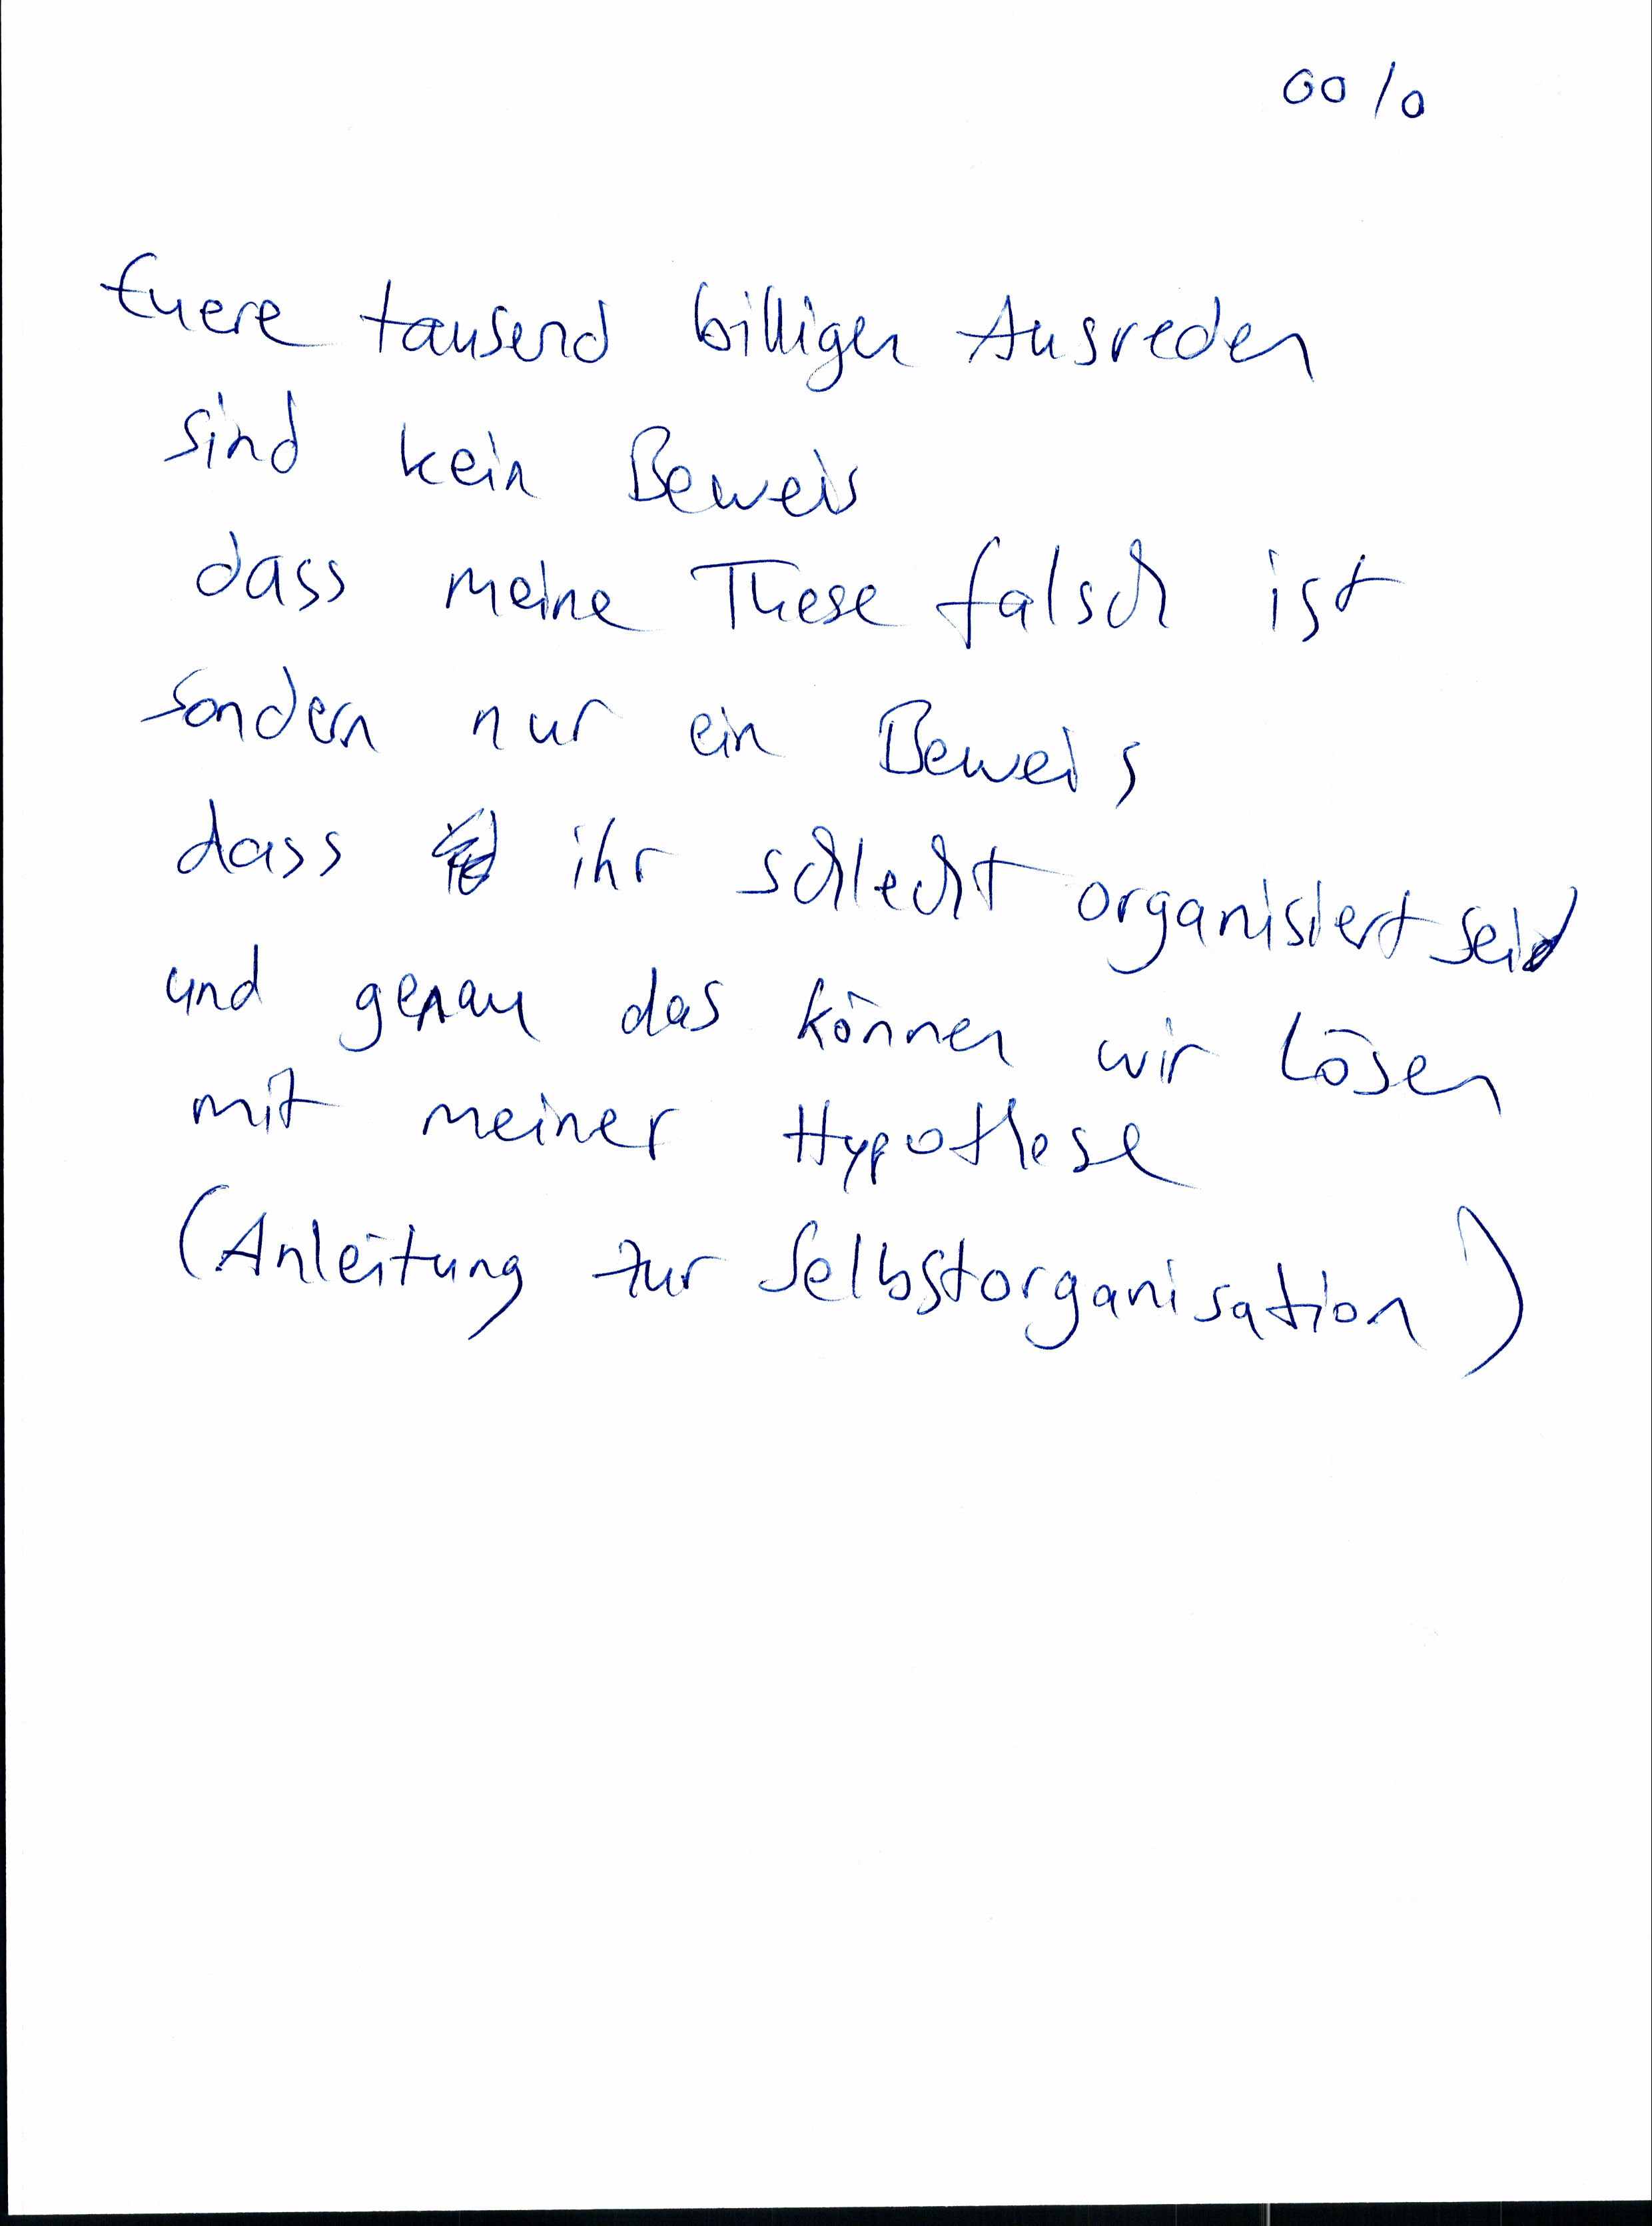 00/0
Euere tausend billigen Ausreden
sind kein Beweis
dass meine These falsch ist
sondern nur ein Beweis
dass ihr schlecht organisiert seid
und genau das können wir lösen
mit meiner Hypothese
(Anleitung zur Selbstorganisation)